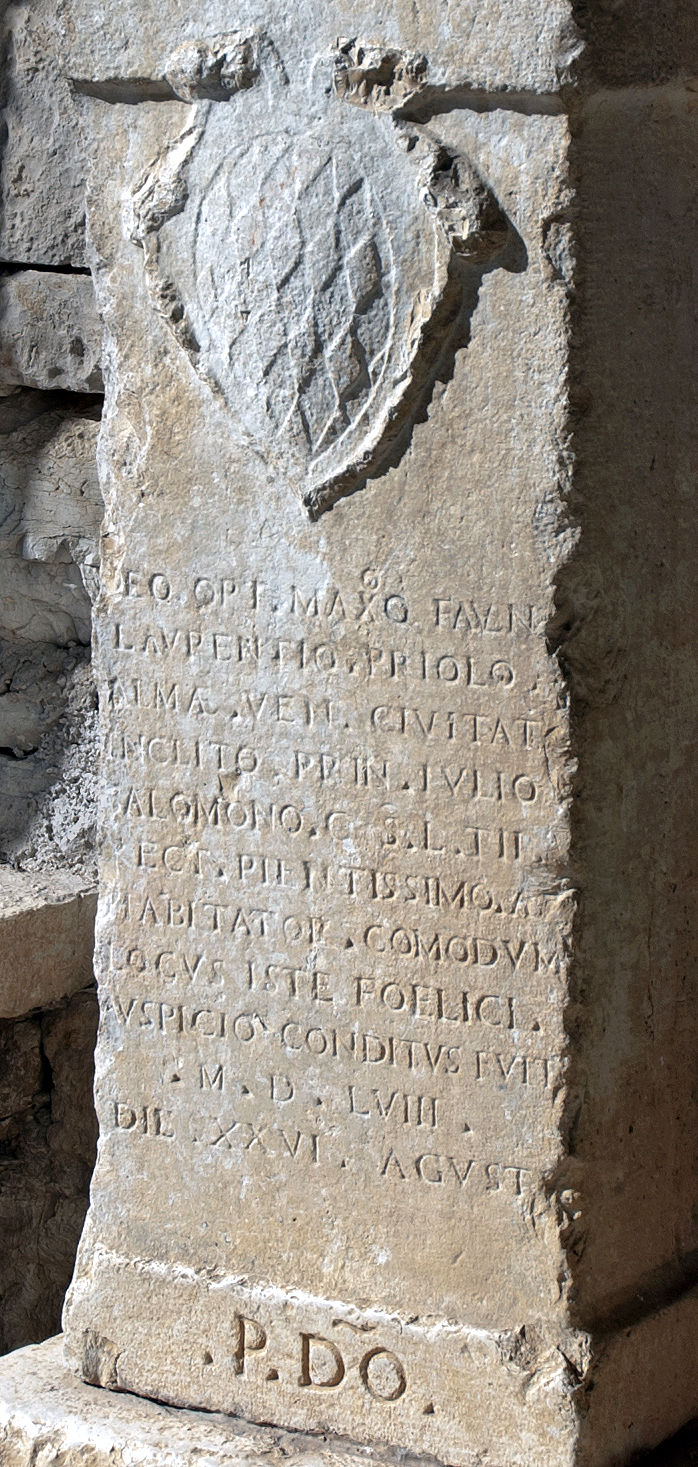 EO. OPT. MAXO FAV.N
LAVRENTIO. PRIOLO
ALMÆ. VEN. CIVITAT
INCLITO. PRIN. IVLIO
ALOMONO. C. S. L. TII
ECT. PIENTISSIMO. A
HABITATOR. COMODVM
LOCVS ISTE FOELICI.
AVSPICIO CONDITVS FVIT
. M. D. LVIII.
DIE. XXVI. AGVSTI
. P. DÕ.